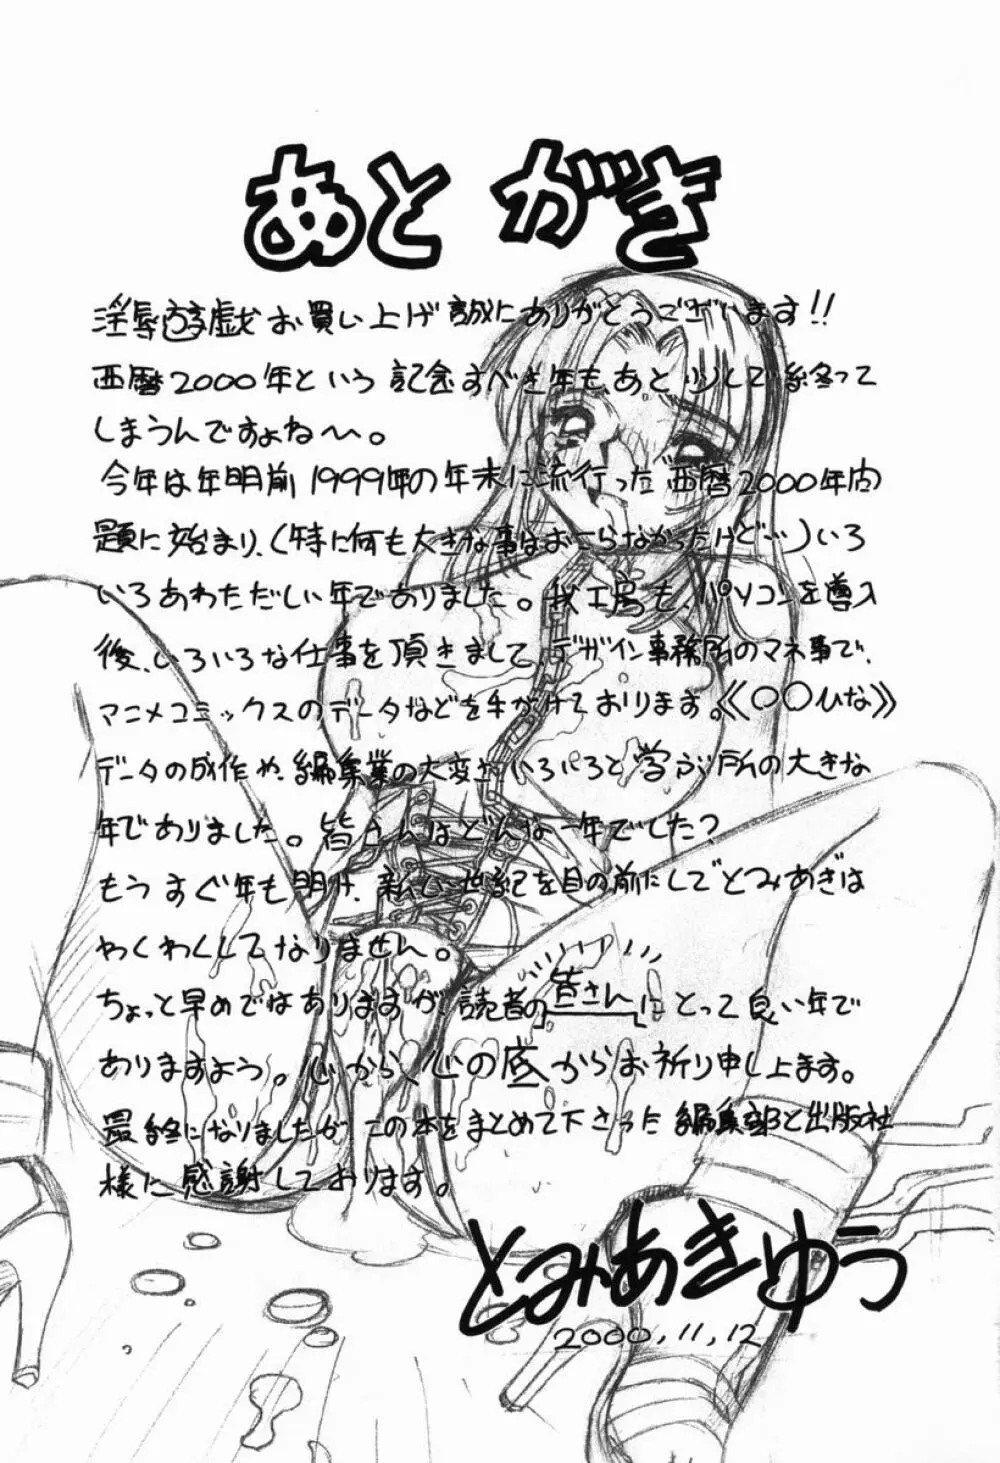 あとがき
淫辱遊戯お買い上げ誠にありがとうございます!!
西暦2000年という記念すべき年も、あと少しで終って
しまうんですよね〜。
今年は年明前1999年の年末に流行った西暦2000年問
題に始まり、(特に何も大きな事はおこらなかったけど…)いろ
いろあわただしい年でありました。我工房も、パソコンを導入
後、いろいろな仕事を頂きまして、デザイン事務所のマネ事で、
マニメコミックスのデータなどを手がけております。《〇〇ひな》
データの成作や、編集業の大変さいろいろと学ぶ所の大きな
年でありました。皆さんはどんな一年でした?
もうすぐ年も明け、新しい世紀を目の前にしてとみあきは
わくわくしてなりません。
ちょっと早めではありますが、読者の皆さんにとって良い年で
ありますよう。心から、心の底からお祈り申し上ます。
最終になりましたが、この本をまとめて下さった編集部と出版社
様に感謝しております。
とみあきゆう
2000,11,12